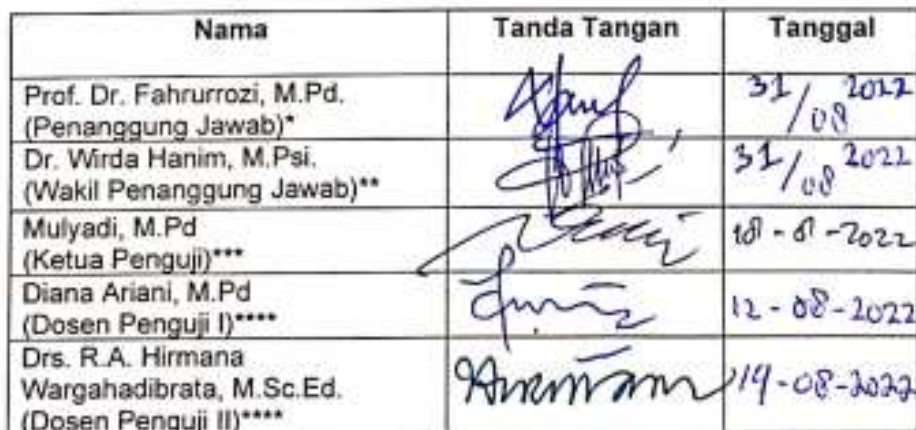 Nama Tanda Tangan Tanggal
Prof. Dr. Fahrurrozi, M.Pd.
(Penanggung Jawab)* 31/08 2022
Dr. Wirda Hanim, M.Psi.
(Wakil Penanggung Jawab)** 31/08 2022
Mulyadi, M.Pd
(Ketua Penguji)*** -2022
Diana Ariani, M.Pd
(Dosen Penguji I)**** 12-08-2022
Drs. R.A. Hirmana
Wargahadibrata, M.Sc.Ed. 19-08-2022
(Dosen Penguji II)****